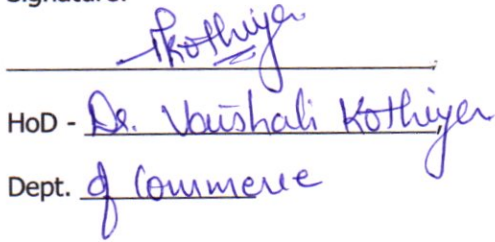 Signature:
Kothiyer
HoD - Dr. Vaishali Kothiyer,
Dept. of Commerce